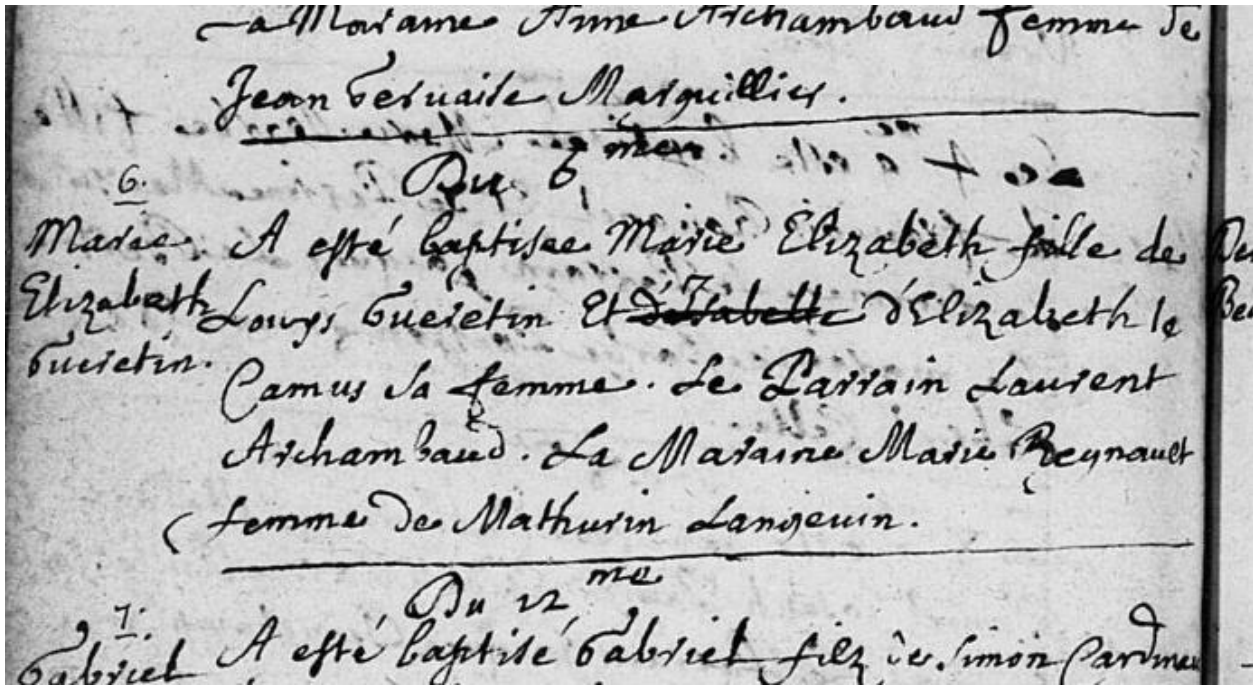 La Maraine Anne Archambaud femme de
Jean Gervaise Marguillier.
Du 6,me
6.
Marie
Elizabeth
Gueretin.
A esté baptisee Marie Elizabeth fille de
Louys Gueretin Et d'Isabelle d'Elizabeth le
Camus sa femme. Le Parrain Laurent
Archambaud. La Maraine Marie Reynault
femme de Mathurin Langevin.
Du 12me
7.
Gabriel
A esté baptisé Gabriel filz de Simon Cardineau